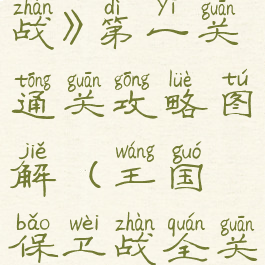 zhàn dì yī guān
战》第一关
tōng guān gōng lüè tú
通关攻略图
jiě wáng guó
解（王国
bǎo wèi zhàn quán guān
保卫战全关